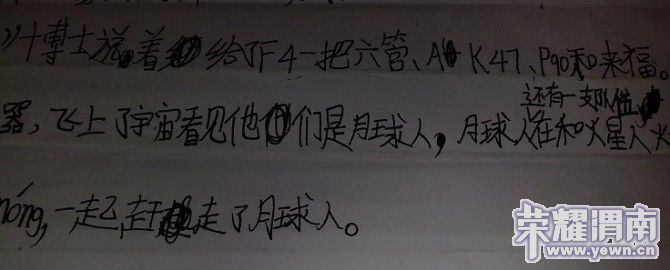 博士说着给了F4一把六管、AK47、P90和来福。
还有一支队伍
器,飞上了宇宙看见他们是月球人,月球人在和火星人火
nóng,一起赶走了月球人。
荣耀渭南
www.yewn.cn